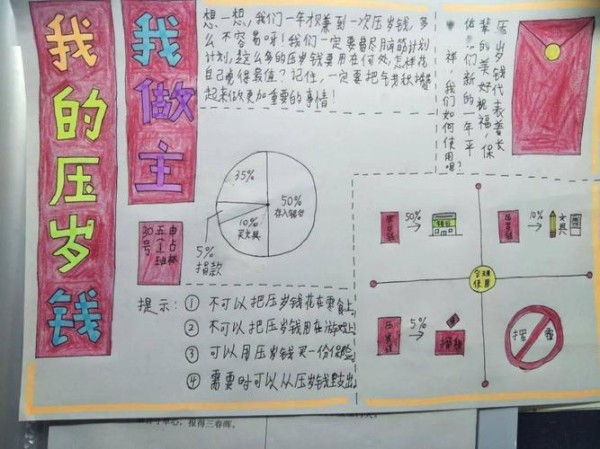 我的压岁钱
我做主
想一想,我们一年才拿到一次压岁钱,多
么不容易呀!我们一定要尽月前筋计划
计划,这么多的压岁钱要用在何处,怎样花
自己觉得最值?记住,一定要把气钱积攒
起来做更加重要的事情!
压岁钱代表着长
辈的美好祝福,保
佑我们新的一年平
祥,我们如何使用呢?
35%
50%
存入银行
10%
买文具
5%
捐款
申占林
五(1)班
30号
提示:① 不可以把压岁钱花在零食上
② 不可以把压岁钱用在游戏上
③ 可以用压岁钱买一份保险
④ 需要时可以从压岁钱里支出
压岁钱 50% 银行
压岁钱 10% 文具
合理
压岁钱 5% 捐款